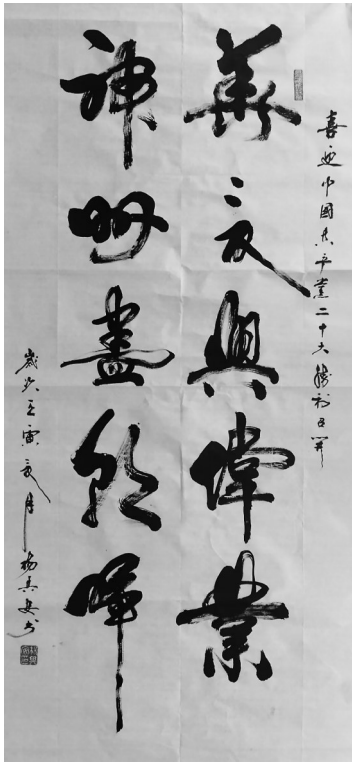 喜迎中國共产黨二十大勝利召開
華夏興偉業
神州盡朝暉
歲次壬寅夏月 楊 书